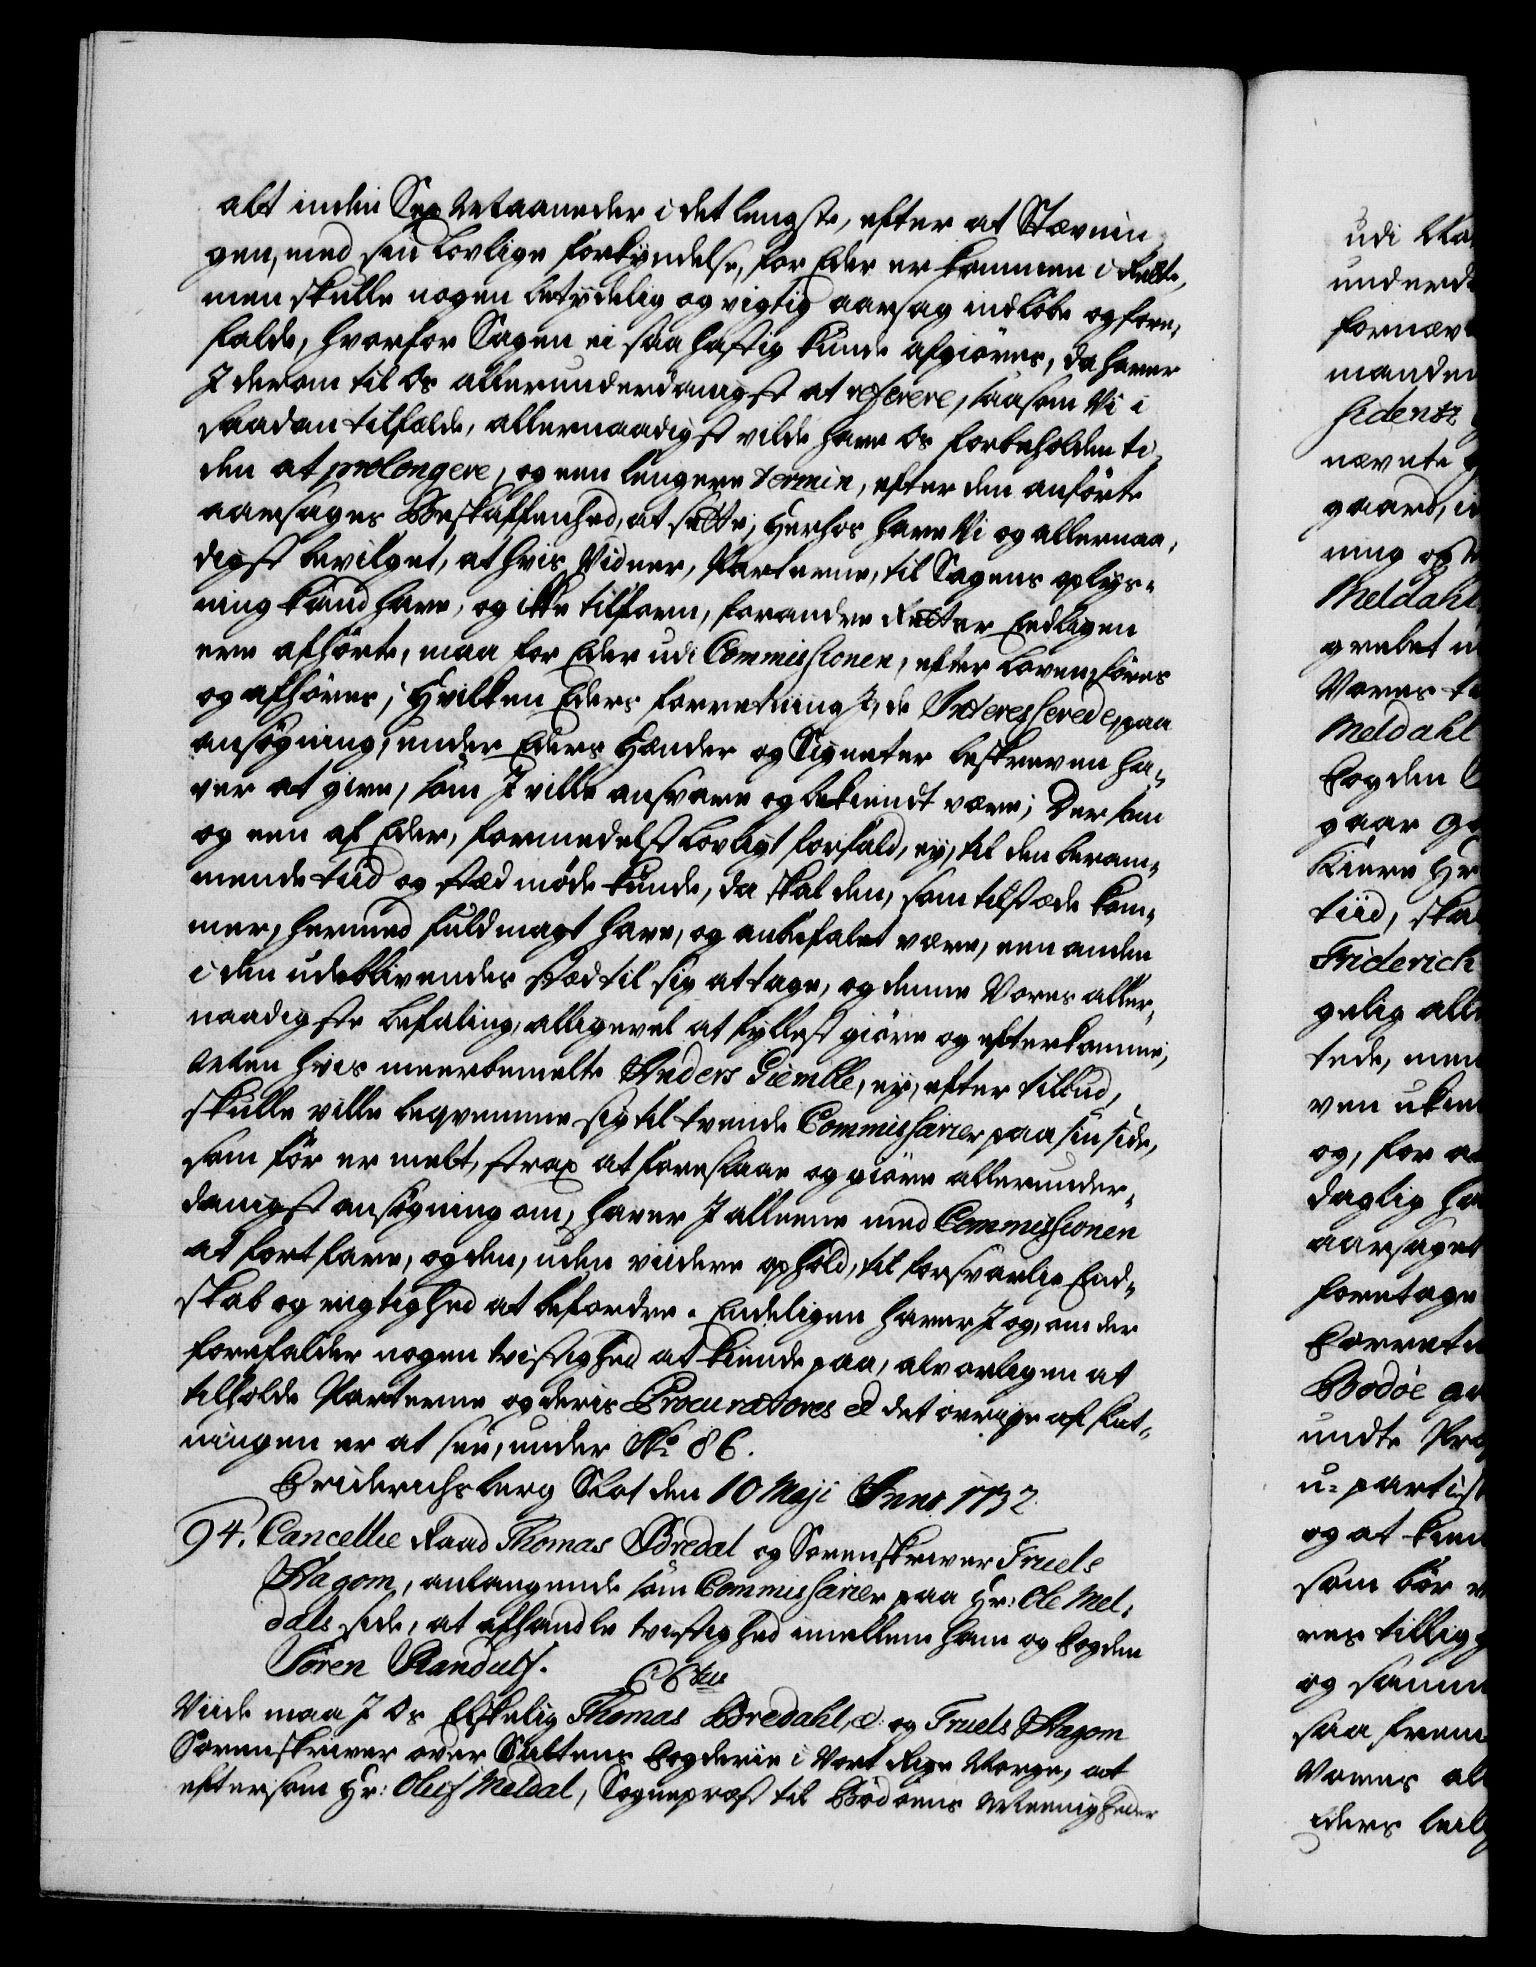 alt inden Sex Maaneder i det lengste, efter at Stævnin¬
gen, med sin Lovlige forkyndelse, for Eder er kommen i Rette,
men skulle nogen betydelig og vigtig aarsag indløbe og fore¬
falde, hvorfor Sagen ei saa hastig kunde afgiøres, da haver
I derom til Os allerunderdanigst at referere, saasom Vi i
saadan tilfælde, allernaadigst vilde have Os forbeholden ti¬
den at prolongere, og een lengere termin, efter den anførte
aarsages Beskaffenhed, at sætte; Herhos have Vi og allernaa¬
digst bevilget, at hvis Vidner, Parterne, til Sagens oplys¬
ning kand have, og ikke tilforn, for andre Retter Eedligen
ere afhørte, maa for Eder udi Commissionen, efter Loven, føres
og afhøres; Hvilken Eders forretning I, de Interesserede, paa
ansøgning, under Eders Hænder og Signeter beskreven ha¬
ver at give, som I ville ansvare og bekiendt være; Dersom
og een af Eder, formedelst Lovligt forfald, ey, til den beram¬
mende tiid og stæd møde kunde, da skal den, som tilstæde kom¬
mer, hermed fuldmagt have, og anbefalet være, een anden
i den udeblivendes stæd til sig at tage, og denne Vores aller¬
naadigste befaling, alligevel at fyllest giøre og efterkomme;
Men hvis meerbemelte Anders Giemble, ey, efter tilbud,
skulle ville beqvemme sig til tvende Commissarier paa sin side,
som før er melt, strax at foreslaae og giøre allerunder¬
danigst ansøgning om, haver I alleene med Commissionen
at fortfare, og den, uden viidere ophold, til forsvarlig End¬
skab og rigtighed at befordre. Endeligen haver I og, om der
forefalder nogen tvistighed at kiende paa, alvorligen at
tilholde Parterne og deris Procuratores et det øvrige af slut¬
ningen er at see, under No 86.
Friderichsberg Slot den 10 Maji Anno 1732.
94. Cancellie Raad Thomas Bredal og Sorenskriver Truels
Hagom, anlangende som Commissarier paa Hr: Ole Mel¬
dals side, at afhandle tvistighed imellem ham og Fogden
Søren Randulf.
C 6tus
Viide maa I Os Elskelig Thomas Bredahl, et: og Truels Hagom
Sorenskriver over Saltens Fogderie i Vort Rige Norge, at
eftersom Hr: Oluf Meldal, Sognepræst til Bodøens Meenigheder